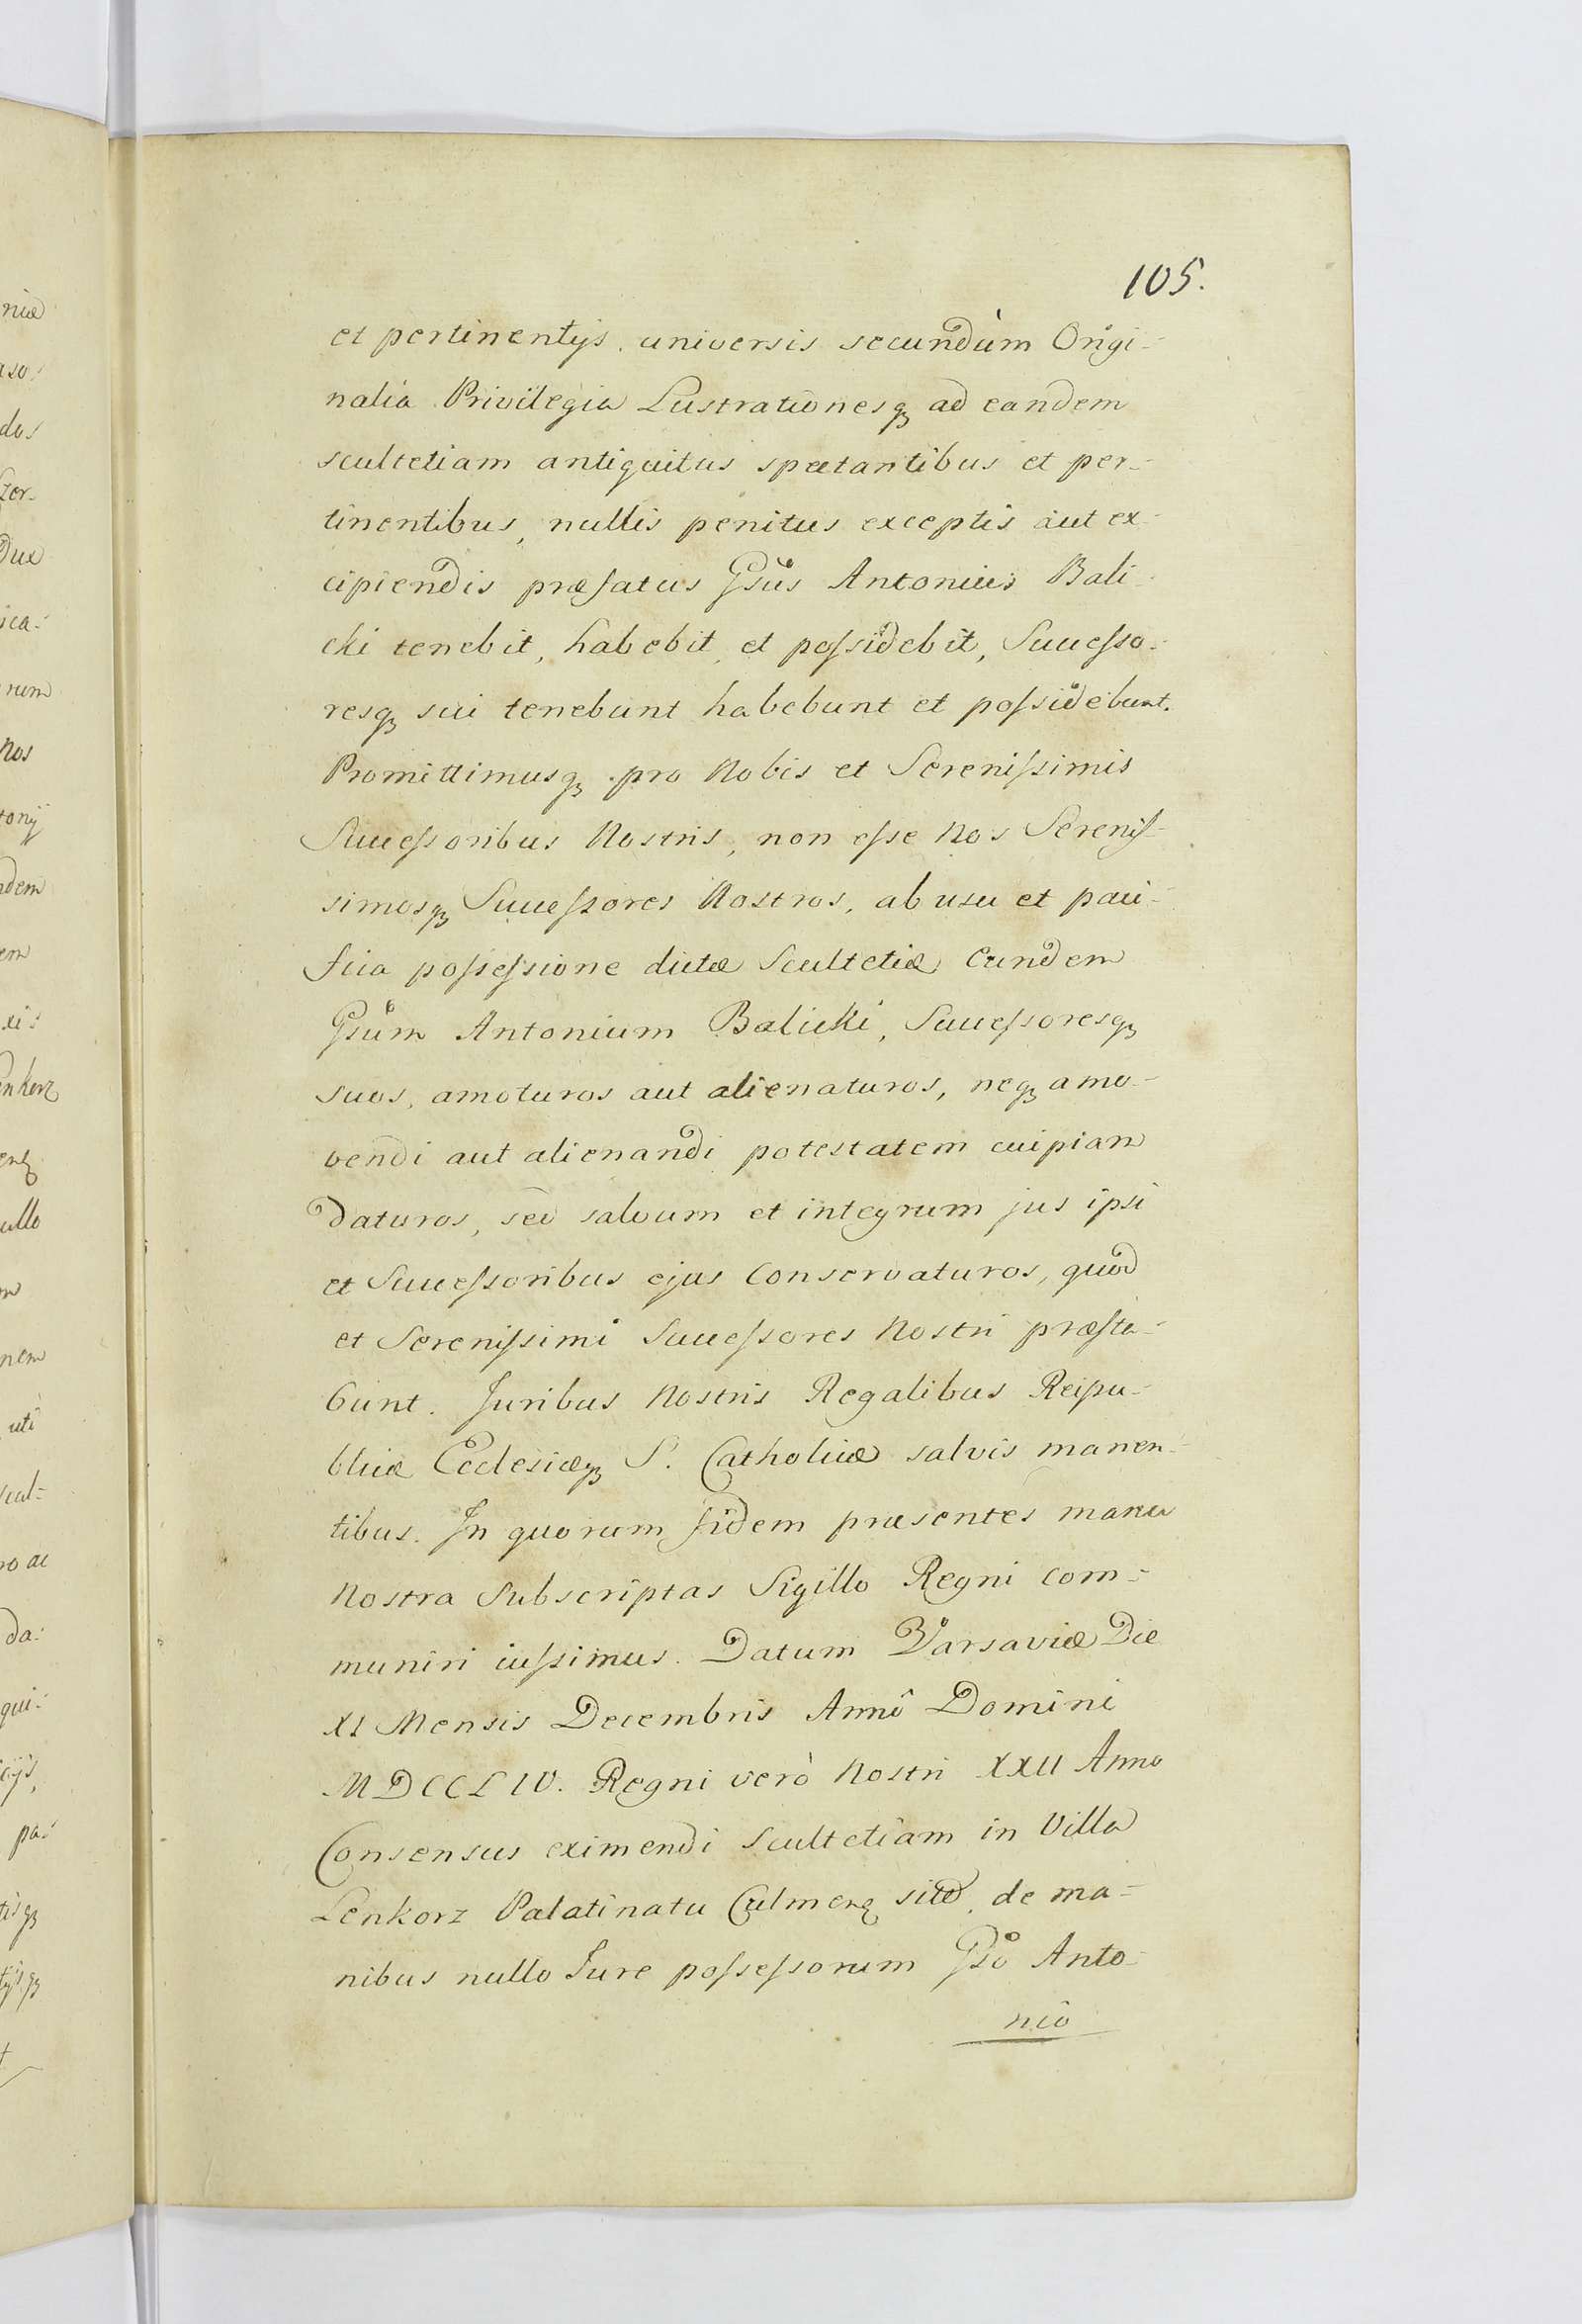 105.
et pertinentijs. universis secundùm Origi-
nalia Privilegia Lustrationesq₃ ad eandem
scultetiam antiquitus spectantibus et per-
tinentibus, nullis penitus exceptis aut ex-
cipiendis præfatus Gsus Antonius Bali-
cki tenebit, habebit, et possidebit, Successo-
resq₃ sui tenebunt habebunt et possidebunt.
Promittimusq₃ pro Nobis et Serenissimis
Successoribus Nostris, non esse Nos Serenis-
simosq₃ Successores Nostros, ab usu et paci-
fica possessione dictæ Scultetiæ Eundem
Gsum Antonium Balicki, Successoresq₃
suos, amoturos aut alienaturos, neq₃ amo-
vendi aut alienandi potestatem cuipiam
daturos, sed salvum et integrum jus ipsi
et Successoribus ejus Conservaturos, quod
et Serenissimi Successores Nostri præsta-
bunt. Juribus Nostris Regalibus Reipu-
blicæ Ecclesiæq₃ S. Catholicæ salvis manen-
tibus. In quorum fidem præsentes manu
Nostra Subscriptas Sigillo Regni com-
muniri iussimus. Datum Varsaviæ Die
XI Mensis Decembris Annô Domini
MDCCLIV. Regni verò Nostri XXII Anno
Consensus eximendi Scultetiam in Villa
Lenkorz Palatinatu Culmen₃ sitæ, de ma-
nibus nullo Jure possessorum Gso Anto-
niô
niæ
dos
Dux
ica-
rum
Nos
tonij
em
enkorz
ullo
nem
uti
scul-
ro ac
da-
qui-
pa-